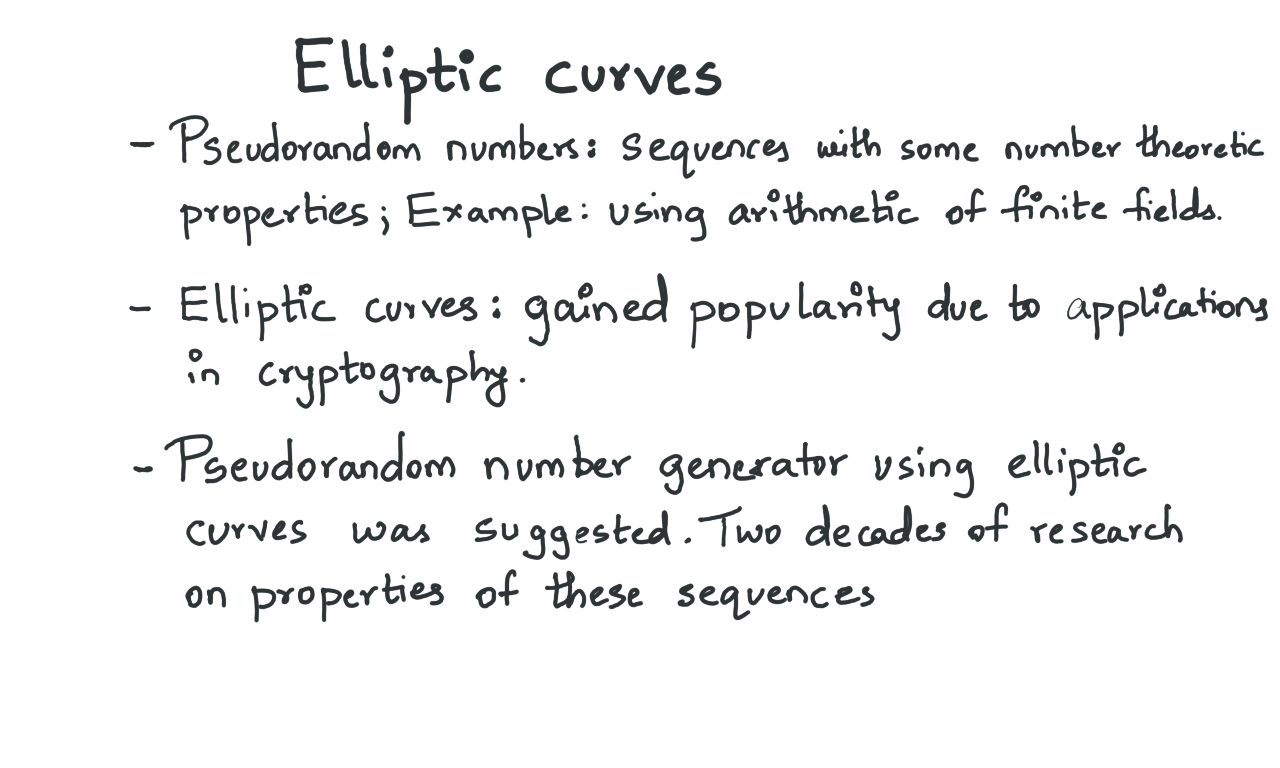 Elliptic curves
- Pseudorandom numbers: sequences with some number theoretic
properties; Example: using arithmetic of finite fields.
- Elliptic curves: gained popularity due to applications
in cryptography.
- Pseudorandom number generator using elliptic
curves was suggested. Two decades of research
on properties of these sequences